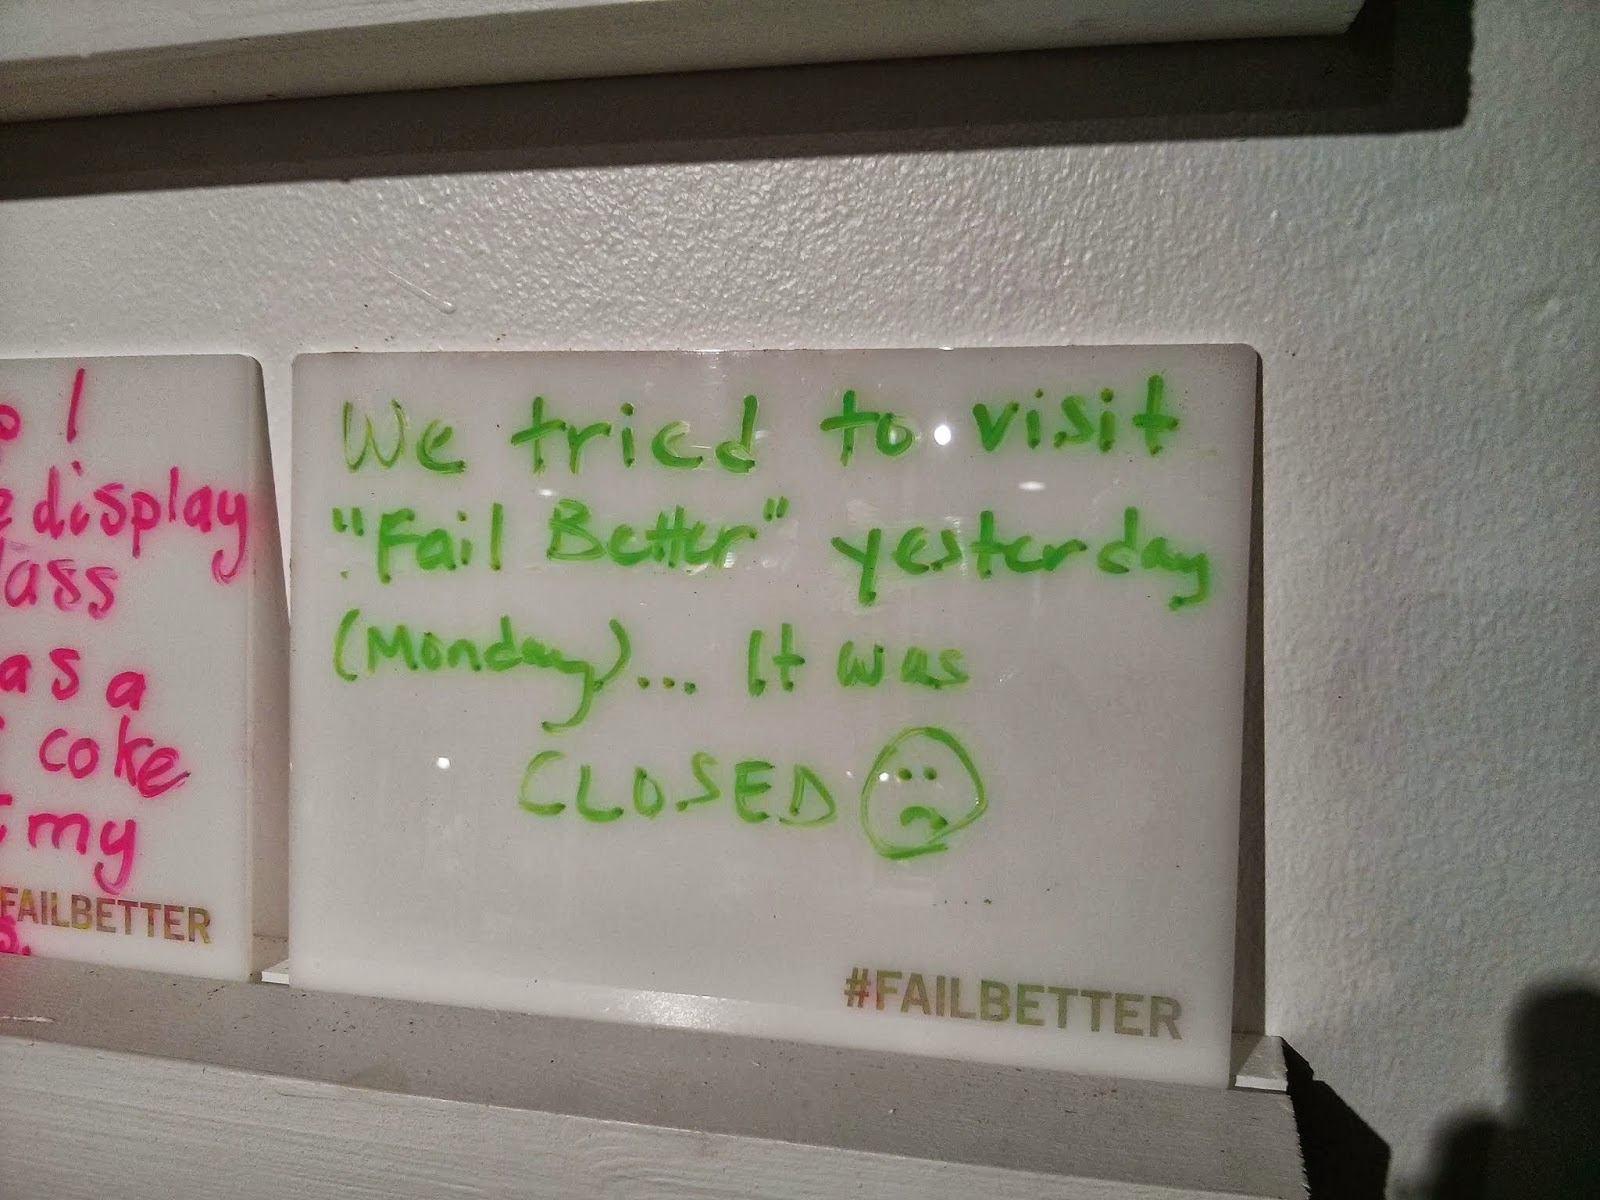 I
display
ass
as a
coke
my
FAILBETTER
s.
We tried to visit
"Fail Better" yesterday
(Monday)... It was
CLOSED
#FAILBETTER